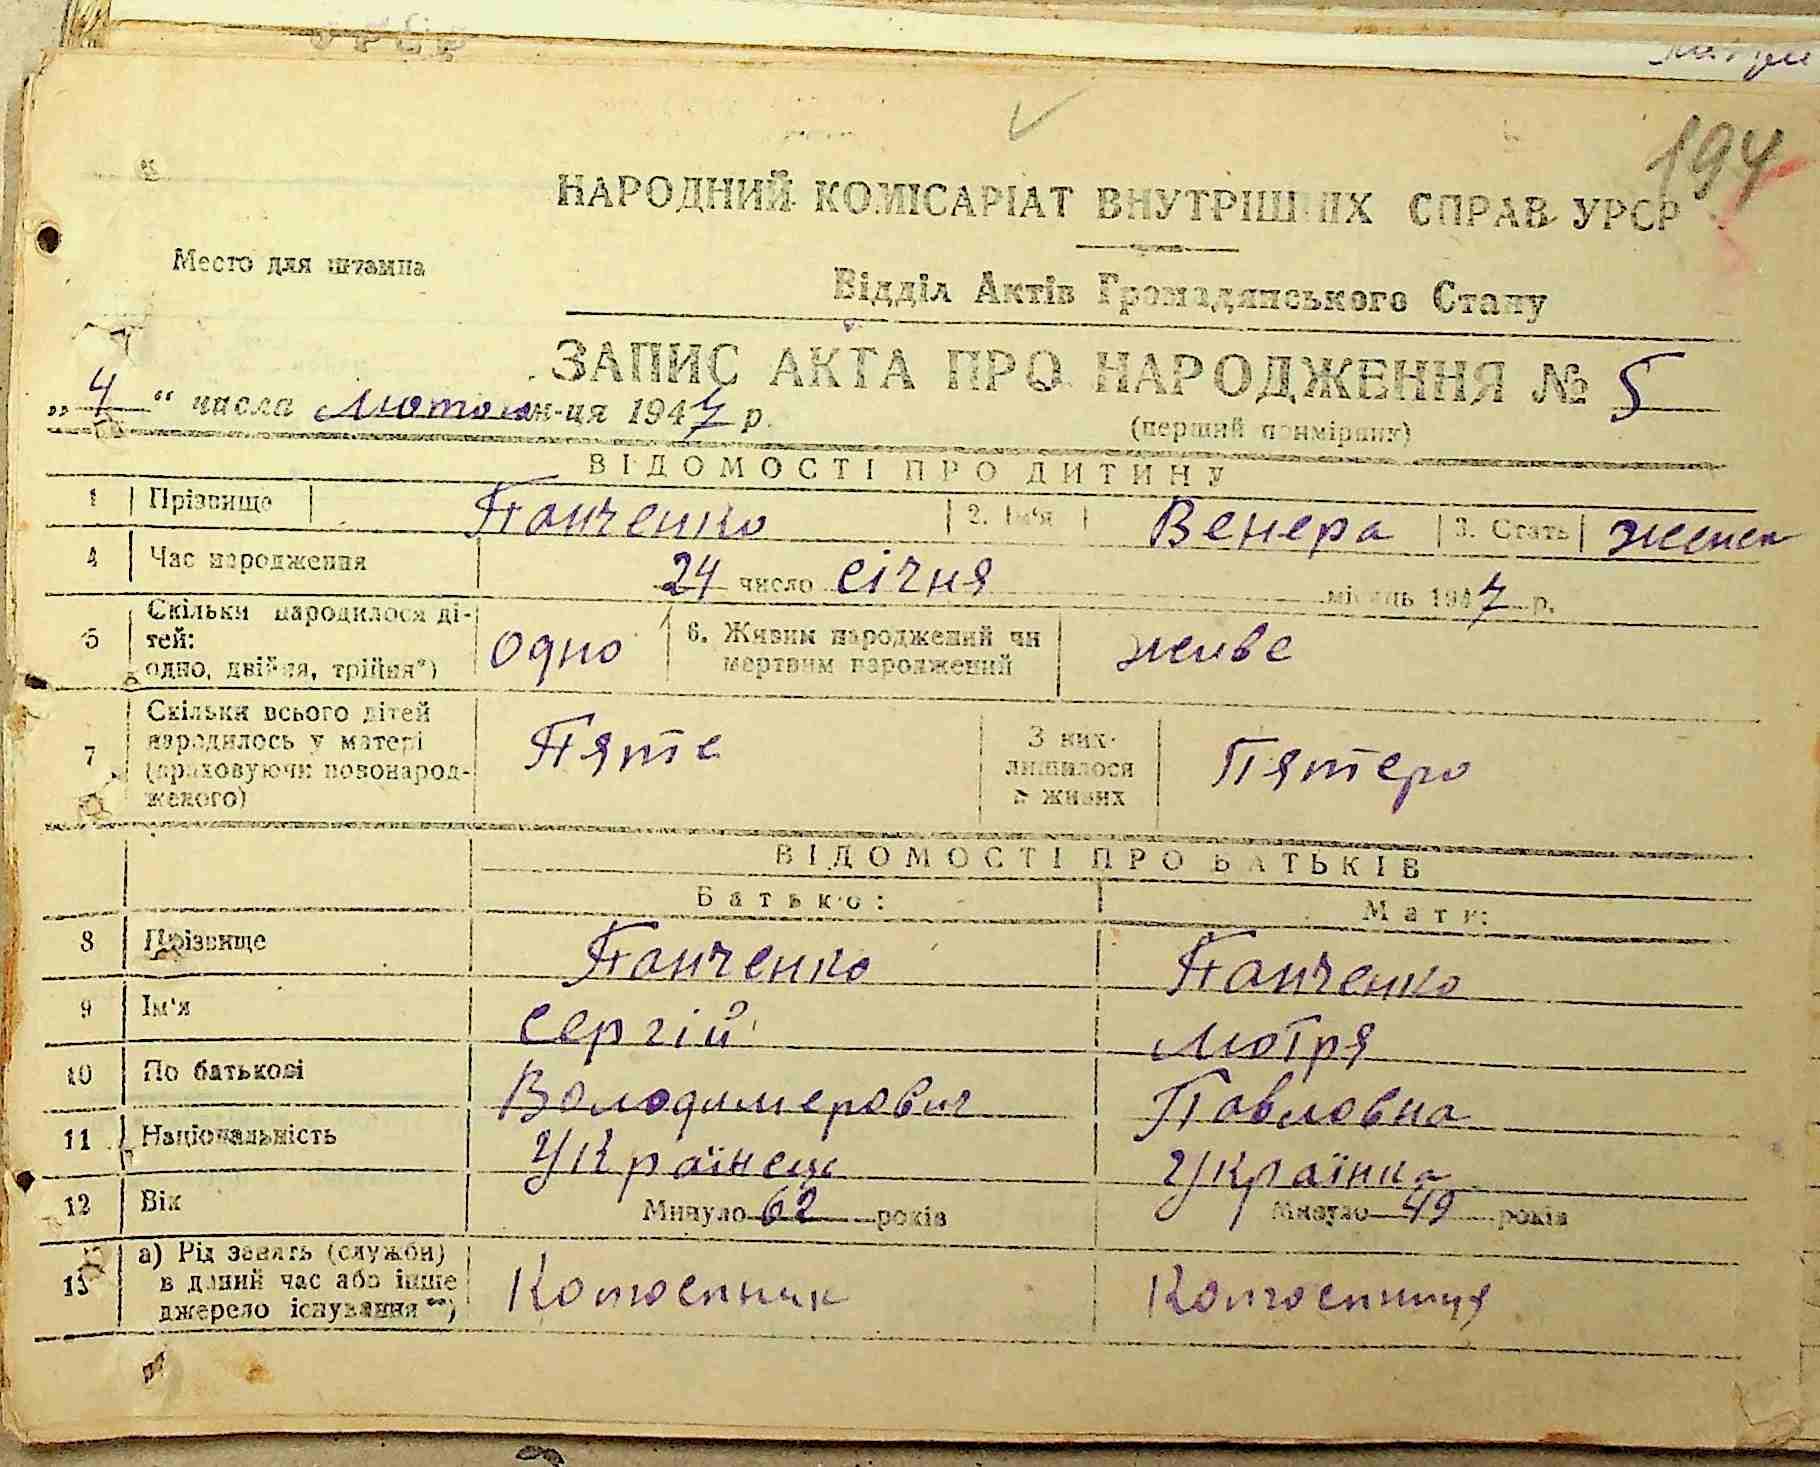 194
НАРОДНИЙ КОМІСАРІАТ ВНУТРІШНІХ СПРАВ УРСР
Место для штампа
Відділ Актів Громадянського Стану
ЗАПИС АКТА ПРО НАРОДЖЕННЯ № 5
„4“ числа Лютого м-ця 1947 р.
(перший примірник)
ВІДОМОСТІ ПРО ДИТИНУ
1 Прізвище Панченко 2. Ім'я Венера 3. Стать женск
4 Час народження 24 число січня місяць 1947 р.
5 Скільки народилося ді-
тей:
одно, двійня, трійня*) одно 6. Живим народжений чи
мертвим народжений живе
7 Скільки всього дітей
народилось у матері
(враховуючи новонарод-
женого) Пяте З них
лишилося
в живих Пятеро
ВІДОМОСТІ ПРО БАТЬКІВ
Батько: Мати:
8 Прізвище Панченко Панченко
9 Ім'я Сергій Мотря
10 По батькові Володимерович Павловна
11 Національність Українець Українка
12 Вік Минуло 62 років Минуло 49 років
13 а) Рід занять (служби)
в даний час або інше
джерело існування**)